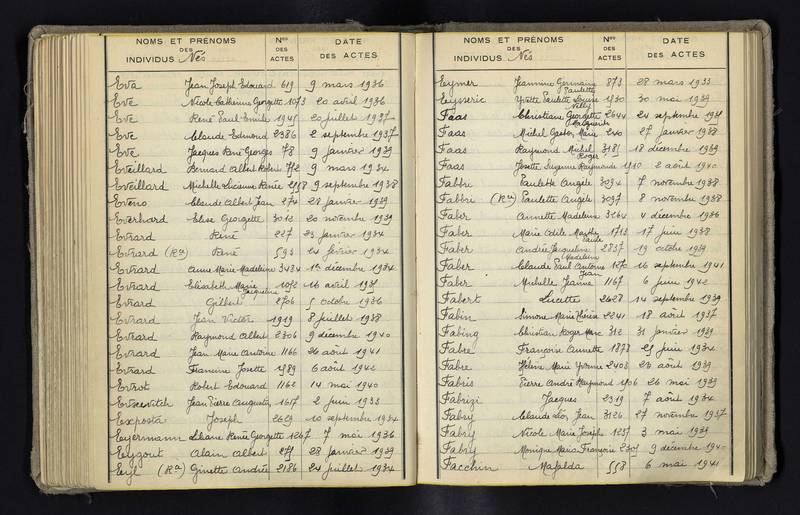 NOMS ET PRÉNOMS DES INDIVIDUS Nés Nos DES ACTES DATE DES ACTES
Eva Jean Joseph Edouard 619 9 mars 1936
Eve Nicole Catherine Georgette 1073 20 avril 1936
Eve René Paul Emile 1945 20 juillet 1937
Eve Claude Edmond 2386 2 septembre 1937
Eve Jacques René Georges 78 9 janvier 1939
Eveillard Bernard Albert Robert 752 9 mars 1934
Eveillard Michelle Lucienne Renée 2558 9 septembre 1938
Eveno Claude Albert Jean 274 28 janvier 1939
Everhard Elise Georgette 3012 20 novembre 1939
Evrard René 227 23 janvier 1934
Evrard (Ra) René 593 14 février 1934
Evrard Anne Marie Madeleine 3424 1er décembre 1934
Evrard Elisabeth Marie Jacqueline 1072 16 avril 1935
Evrard Gilbert 2706 5 octobre 1936
Evrard Jean Victor 1919 8 juillet 1938
Evrard Raymond Albert 2306 9 décembre 1940
Evrard Jean Marie Antoine 1166 26 août 1941
Evrard Francine Josette 1589 6 août 1942
Evrot Robert Edouard 1162 14 mai 1940
Jean Pierre Auguste 1617 2 juin 1933
Exposta Joseph 2629 10 septembre 1934
Eyermann Liliane Renée Georgette 1267 7 mai 1936
Eygout Alain Albert 271 28 janvier 1939
Eyl (Ra) Ginette Andrée 2186 24 juillet 1934
NOMS ET PRÉNOMS DES INDIVIDUS Nés Nos DES ACTES DATE DES ACTES
Eymer Jeannine Germaine Paulette 873 28 mars 1933
Eysseric Yvette Paulette Louise Nelly 1530 30 mai 1939
Faas Christiane Georgette Marguerite 2644 24 septembre 1931
Faas Michel Gaston Marie 240 27 janvier 1938
Faas Raymond Michel Roger 3181 18 décembre 1939
Faas Josette Suzanne Raymonde 1510 2 août 1940
Fabbri Paulette Angèle 3094 7 novembre 1938
Fabbri (Ra) Paulette Angèle 3097 8 novembre 1938
Faber Annette Madeleine 3264 4 décembre 1936
Faber Marie Odile 1713 17 juin 1938
Faber Andrée Jacqueline Madeleine 2837 19 octobre 1939
Faber Claude Paul Antoine Jean 1270 16 septembre 1941
Faber Michelle Jeanne 1167 6 juin 1942
Fabert Lucette 2628 14 septembre 1939
Fabin Simone Marie Thérèse 2241 18 août 1937
Fabing Christian Roger Marc 312 31 janvier 1939
Fabre Françoise Annette 1878 29 juin 1934
Fabre Hélène Marie Yvonne 2408 23 août 1939
Fabris Pierre André Raymond 1506 26 mai 1939
Fabrizi Jacques 2319 7 août 1934
Fabry Claude Léo Jean 3126 27 novembre 1937
Fabry Nicole Marie Joseph 1237 3 mai 1939
Fabry Monique Marie Françoise 2301 9 décembre 1940
Facchin Mafalda 558 6 mai 1941